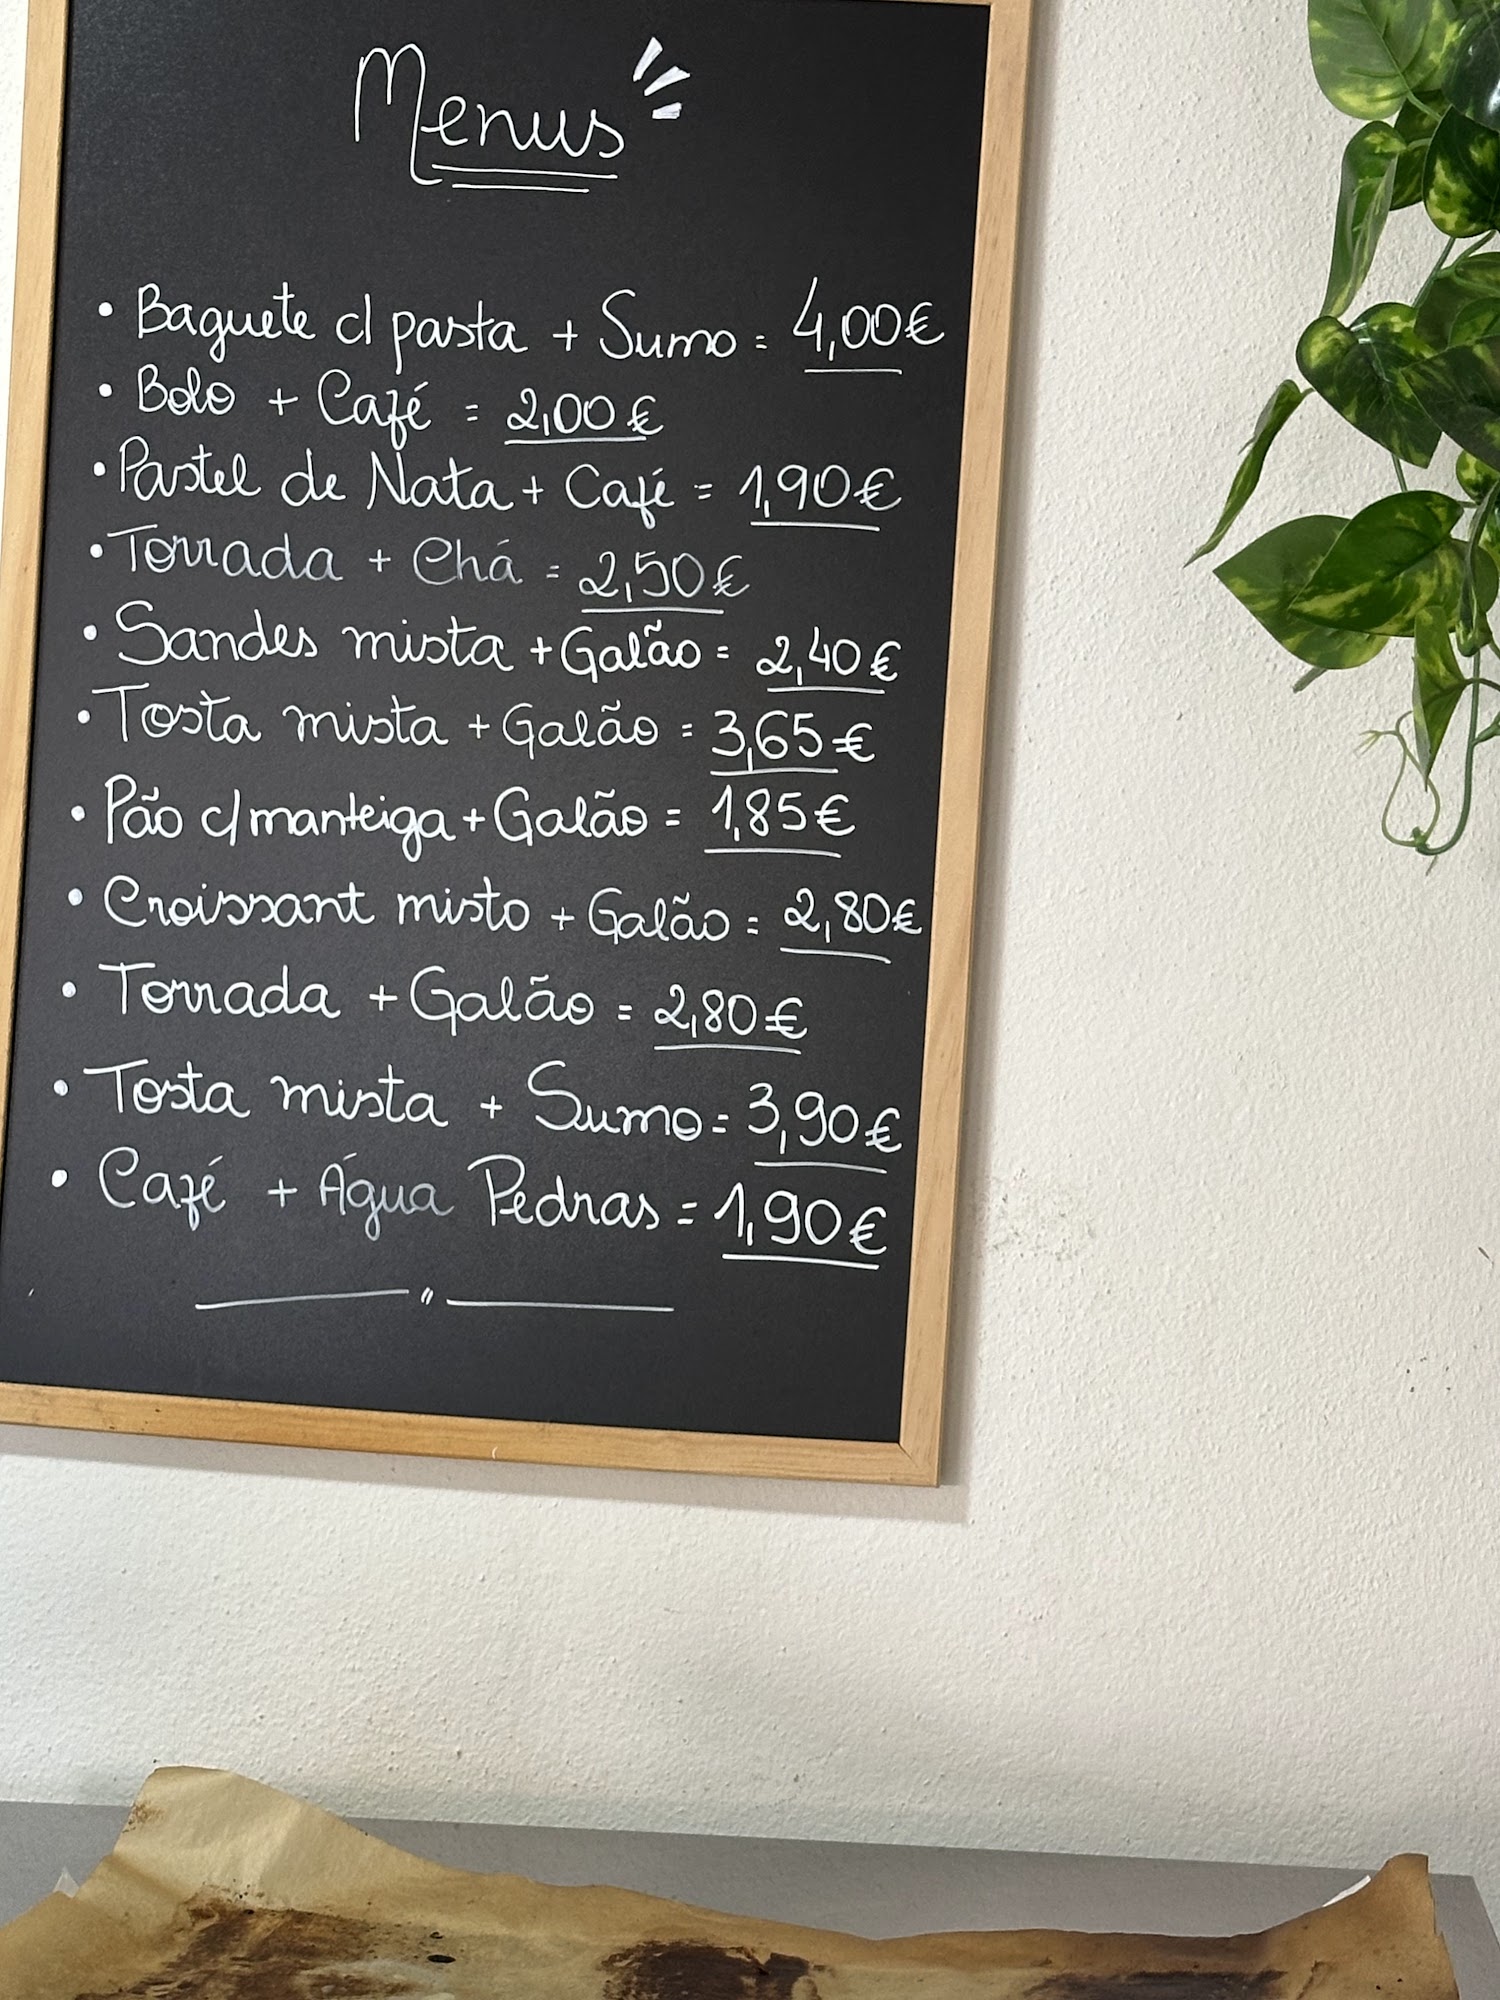 Menus
• Baguete c/ pasta + Sumo = 4,00€
• Bolo + Café = 2,00€
• Pastel de Nata + Café = 1,90€
• Torrada + Chá = 2,50€
• Sandes mista + Galão = 2,40€
• Tosta mista + Galão = 3,65€
• Pão c/ manteiga + Galão = 1,85€
• Croissant misto + Galão = 2,80€
• Torrada + Galão = 2,80€
• Tosta mista + Sumo = 3,90€
• Café + Água Pedras = 1,90€